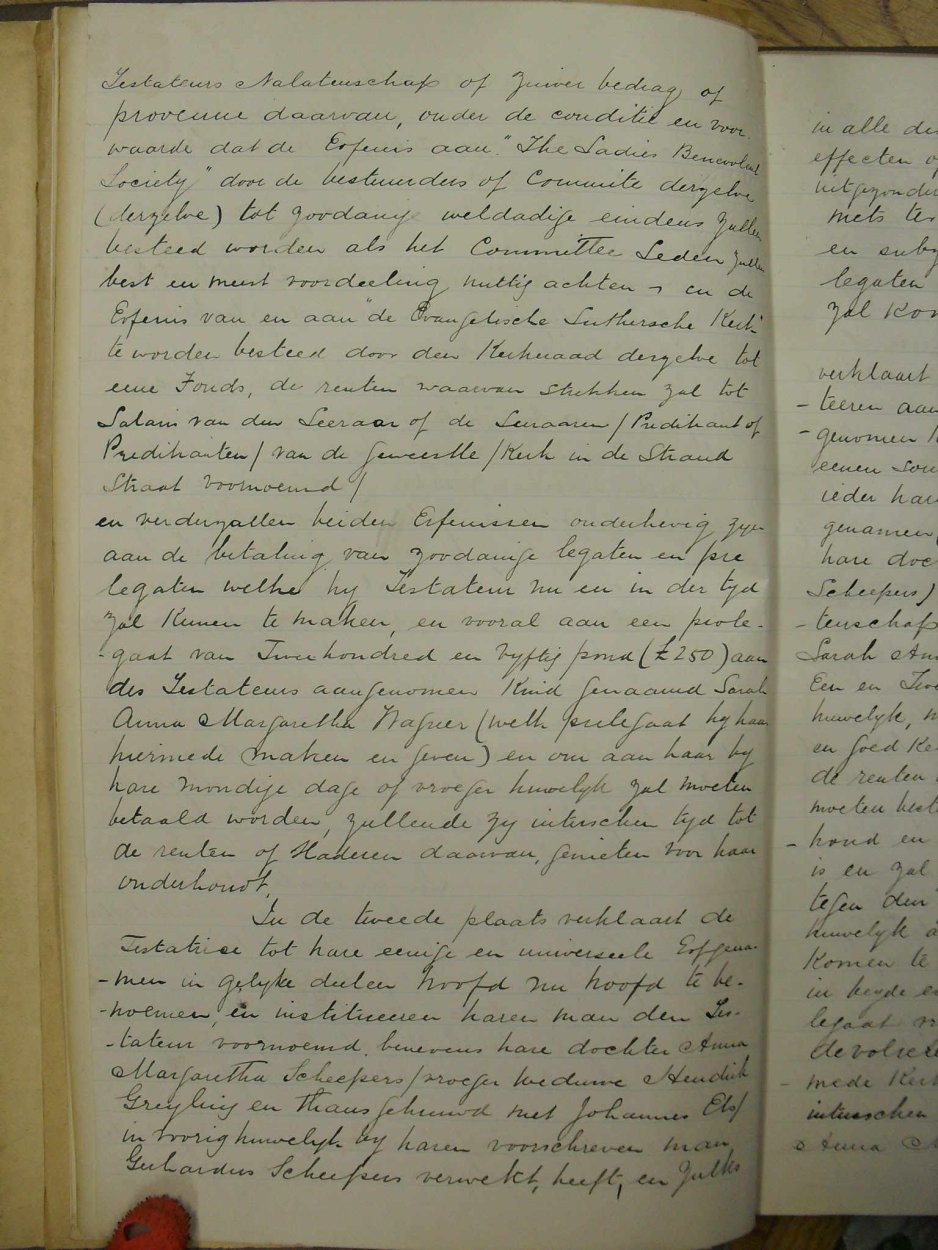 Testateurs Nalatenschap of zuiver bedrag of
provenue daarvan, onder de conditie en voor-
waarde dat de Erfenis aan "The Ladies Benevolent
Society" door de bestuurders of Committe derzelve
(derzelve) tot zoodanige weldadige eindens zullen
besteed worden als het Committee Leden zullen
best en meest voordeelig nuttig achten en de
Erfenis van en aan "de Evangelische Luthersche Kerk"
te worden besteed door den Kerkeraad derzelve tot
eene Fonds, de renten waarvan strekken zal tot
Salaris van den Leeraar of de Leeraaren / Predikant of
Predikanten / van de Gemeente / Kerk in de Strand
Straat voornoemd /
en verder zullen beiden Erfenissen onderhevig zyn
aan de betaling van zoodanige legaten en pre
legaten welke hy Testateur nu en in der tyd
zal Kunnen te maken, en vooral aan een prele-
-gaat van Twee hondred en Vyftig pond (£250) aan
des Testateurs aangenomen Kind genaamd Sarah
Anna Margaretha Wagner (welk prelegaat hy haar
hiermede maken en geven) en om aan haar by
hare mondige dage of vroeger huwelyk zal moeten
betaald worden, zullende zy interschen tyd tot
de renten of daarvan, genieten voor haar
onderhoud,
In de tweede plaats verklaart de
Testatrice tot hare eenige en universeele Erfgena-
-men in gelyke deelen hoofd nu hoofd te be-
-noemen, en institueeren haren man den Tes-
-tateur voornoemd, benevens hare dochter Anna
Margaretha Scheepers / vroeger weduwe Hendrik
Greyling en thans gehuwd met Johannes Els /
in voorig huwelyk by haren voorschreven man
Gerhardus Scheepers verwekt, heeft, en zulks
in alle
effecten
uitgezonder
niets
en
legaten
zal

verklaart
- teeren aan
- genomen
eenen
ieder
genamen
hare
Scheepers)
- tenschap
Sarah
Een en
huwelyk,
en goed
de renten
moeten
- houd en
is en zal
tegen den
huwelyk
Komen te
in beyde
legaat

- mede
interschen
Anna